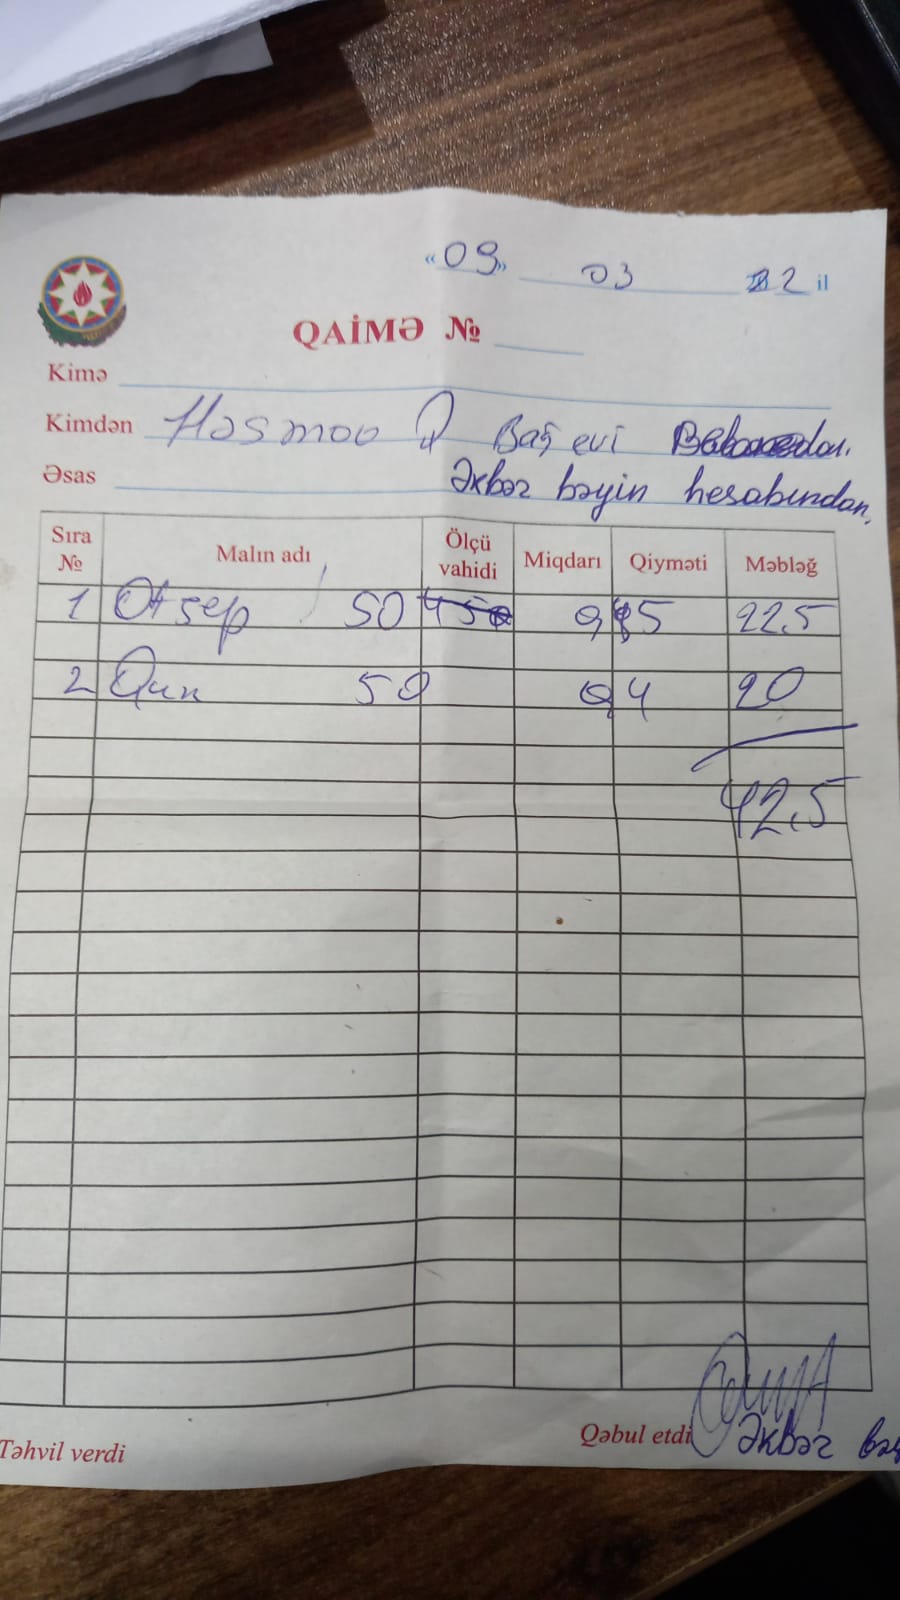 «09» 03 22 il
QAİMƏ №
Kimə
Kimdən Həsmoo Q Baş evi
Əsas Əkbər bəyin hesabından,
Sıra № Malın adı Ölçü vahidi Miqdarı Qiyməti Məbləğ
1 Otsep 50 0,45 22,5
2 50 0,4 20
42,5
Təhvil verdi Qəbul etdi Əkbər